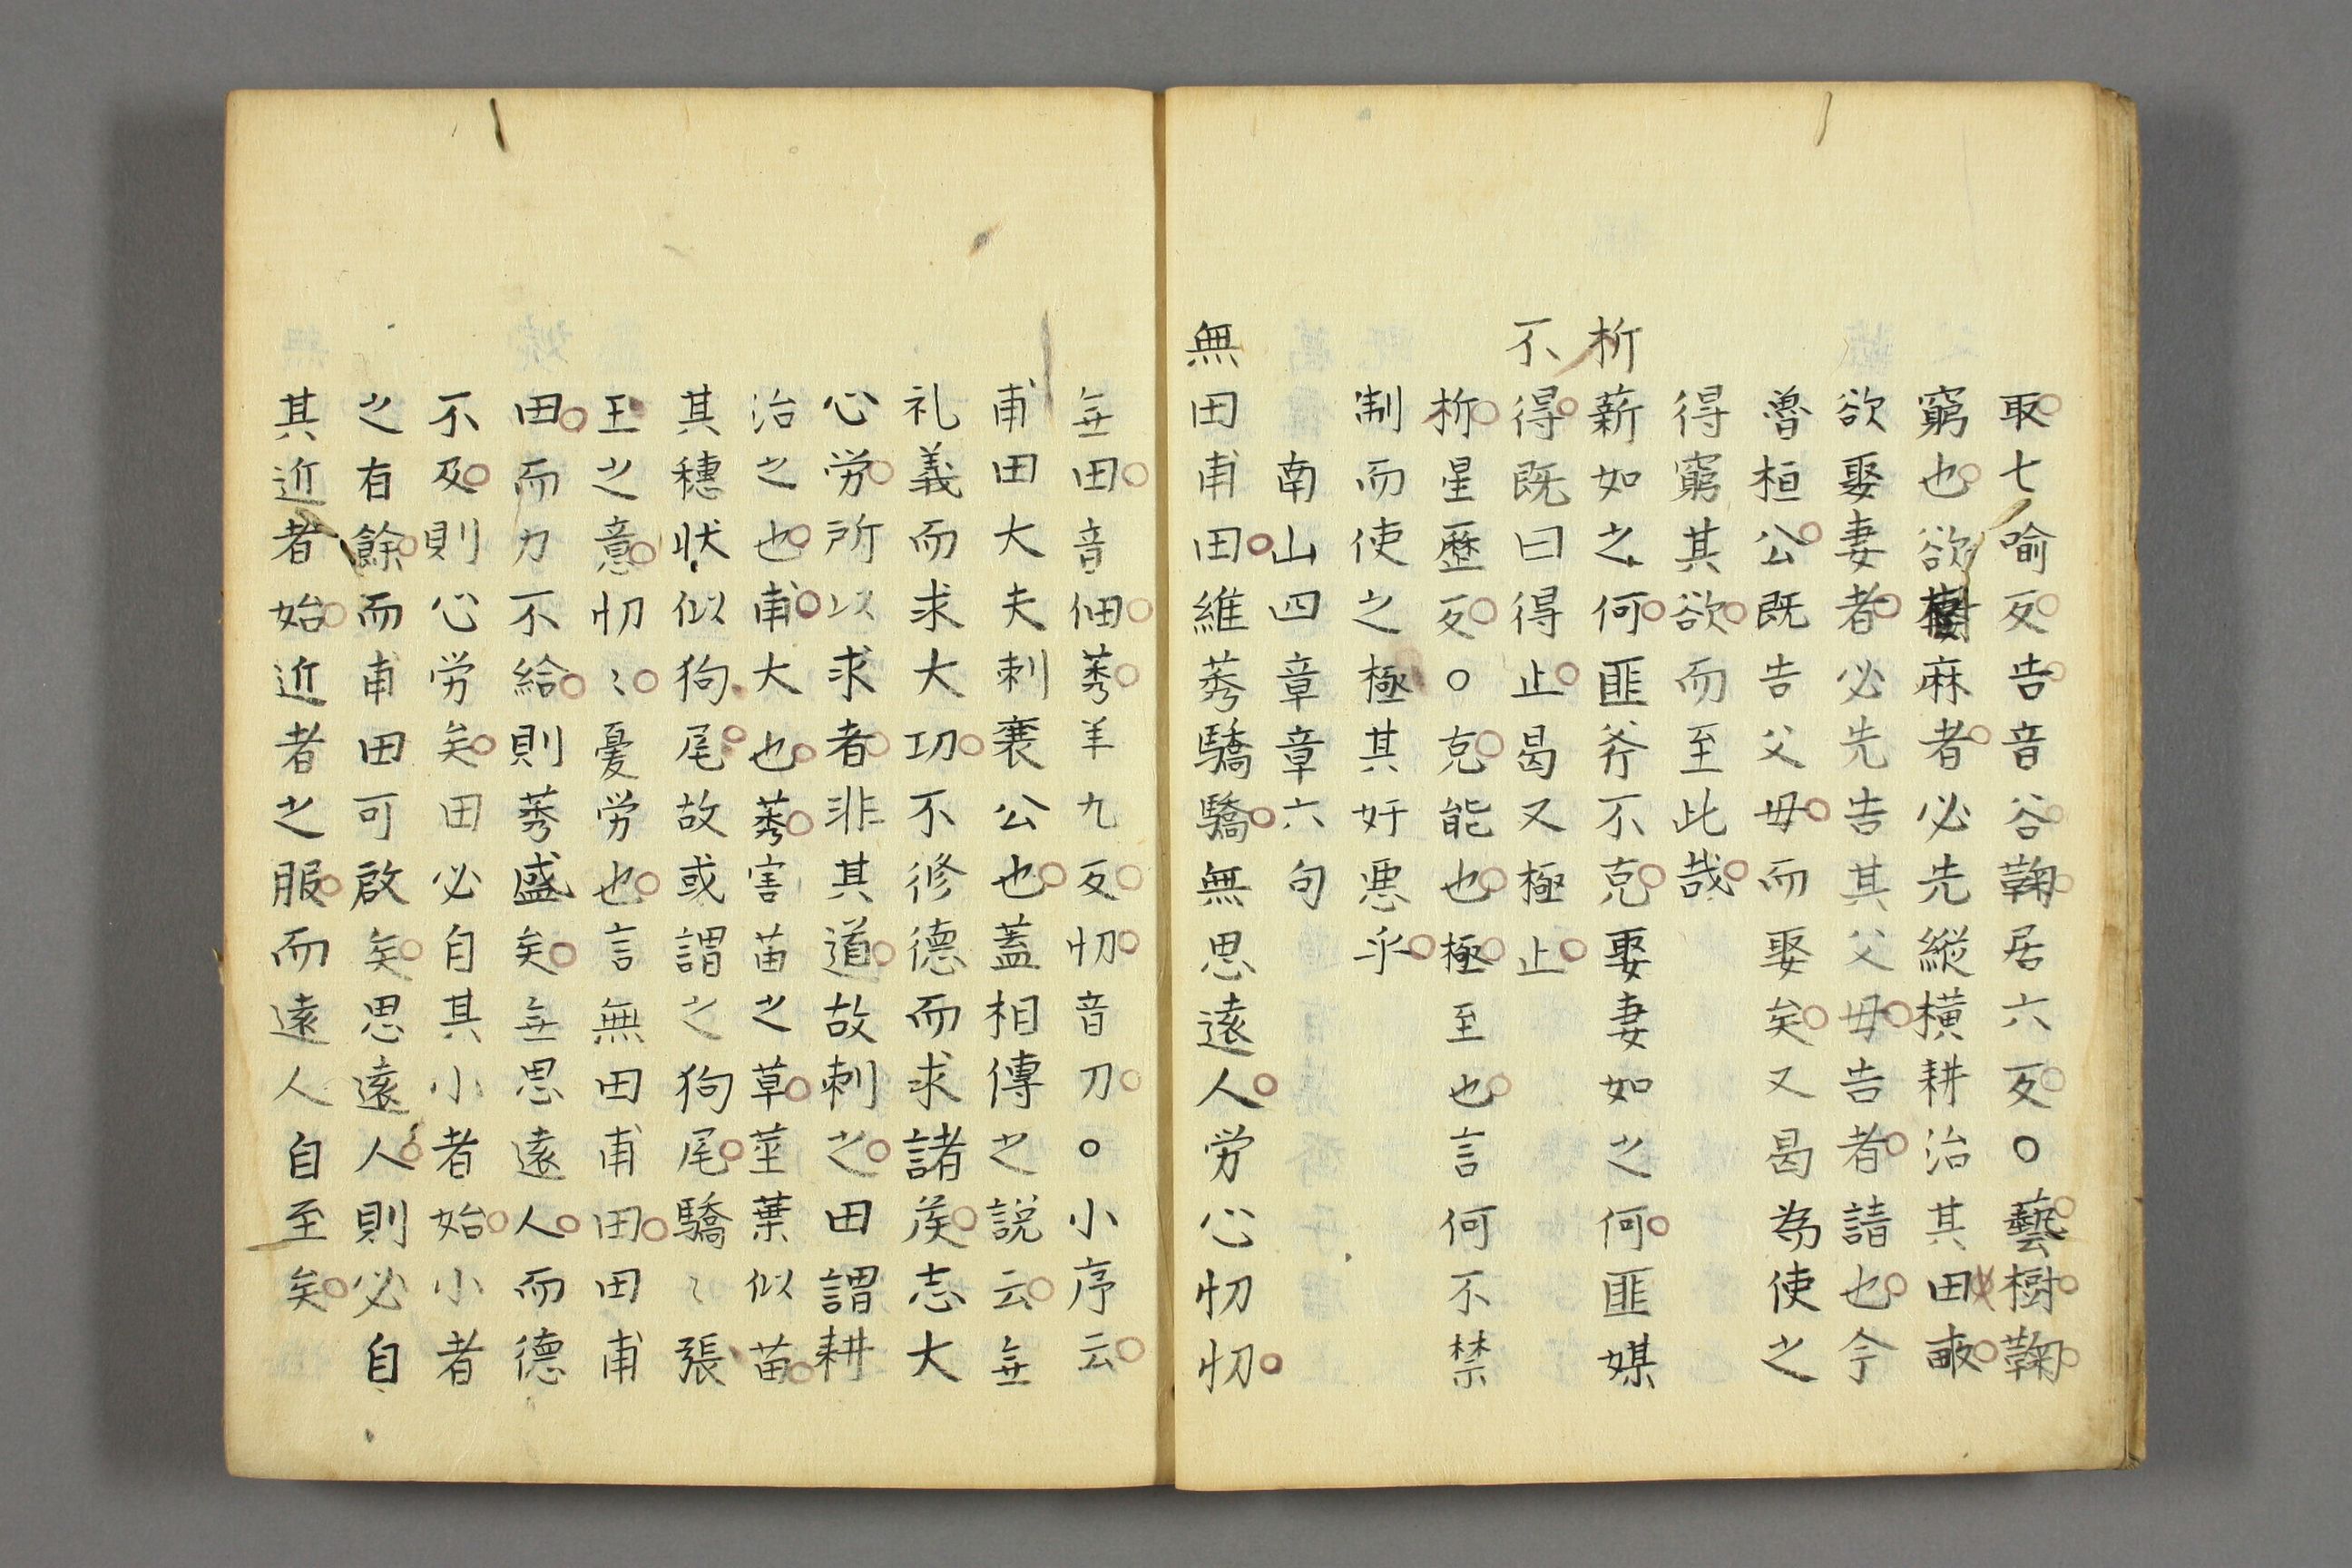 取七喻反告音谷鞠居六反○藝樹鞠
窮也欲樹麻者必先縦横耕治其田畝
欲娶妻者必先告其父母告者請也今
魯桓公既告父母而娶矣又曷為使之
得窮其欲而至此哉
析薪如之何匪斧不克娶妻如之何匪媒
不得既曰得止曷又極止
析星歴反○克能也極至也言何不禁
制而使之極其奸悪乎
南山四章章六句
無田甫田維莠驕驕無思遠人労心忉忉
無田音佃莠羊九反忉音刀○小序云
甫田大夫刺襄公也蓋相傳之説云無
礼義而求大功不修德而求諸侯志大
心労所以求者非其道故刺之田謂耕
治之也甫大也莠害苗之草莖葉似苗
其穗状似狗尾故或謂之狗尾驕〻張
王之意忉〻憂労也言無田甫田田甫
田而力不給則莠盛矣無思遠人而德
不及則心労矣田必自其小者始小者
之有餘而甫田可啟矣思遠人則必自
其近者始近者之服而遠人自至矣